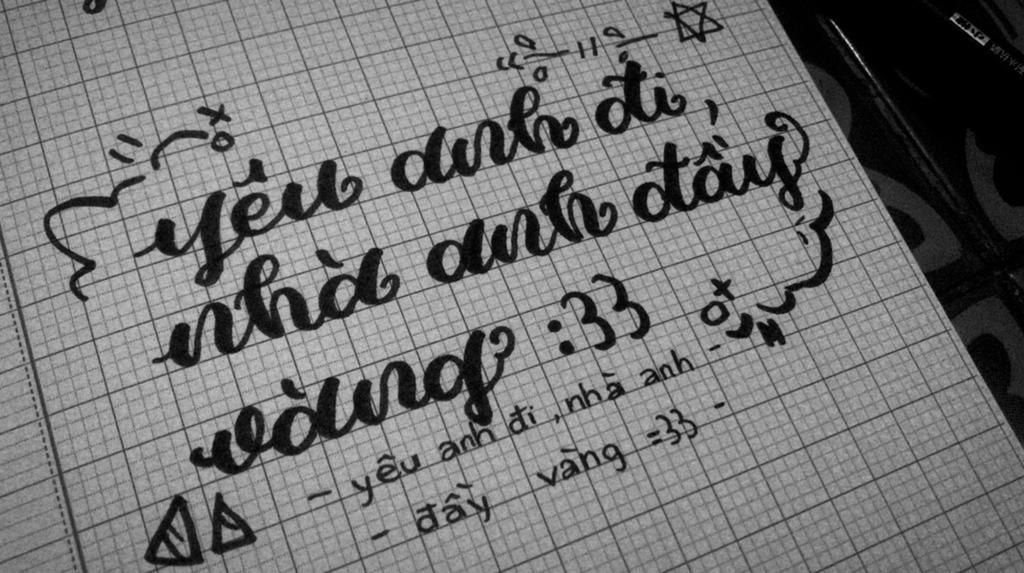 yêu anh đi,
nhà anh đầy
vàng :33
- yêu anh đi, nhà anh -
- đầy vàng =33 -